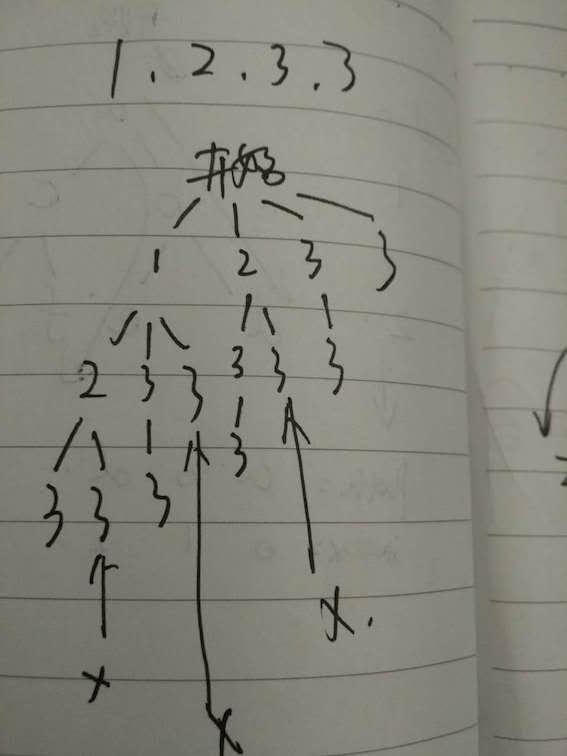 1. 2. 3. 3
开始
1 2 3 3
2 3 3 3 3 3
3 3 3 3
x
x
x.